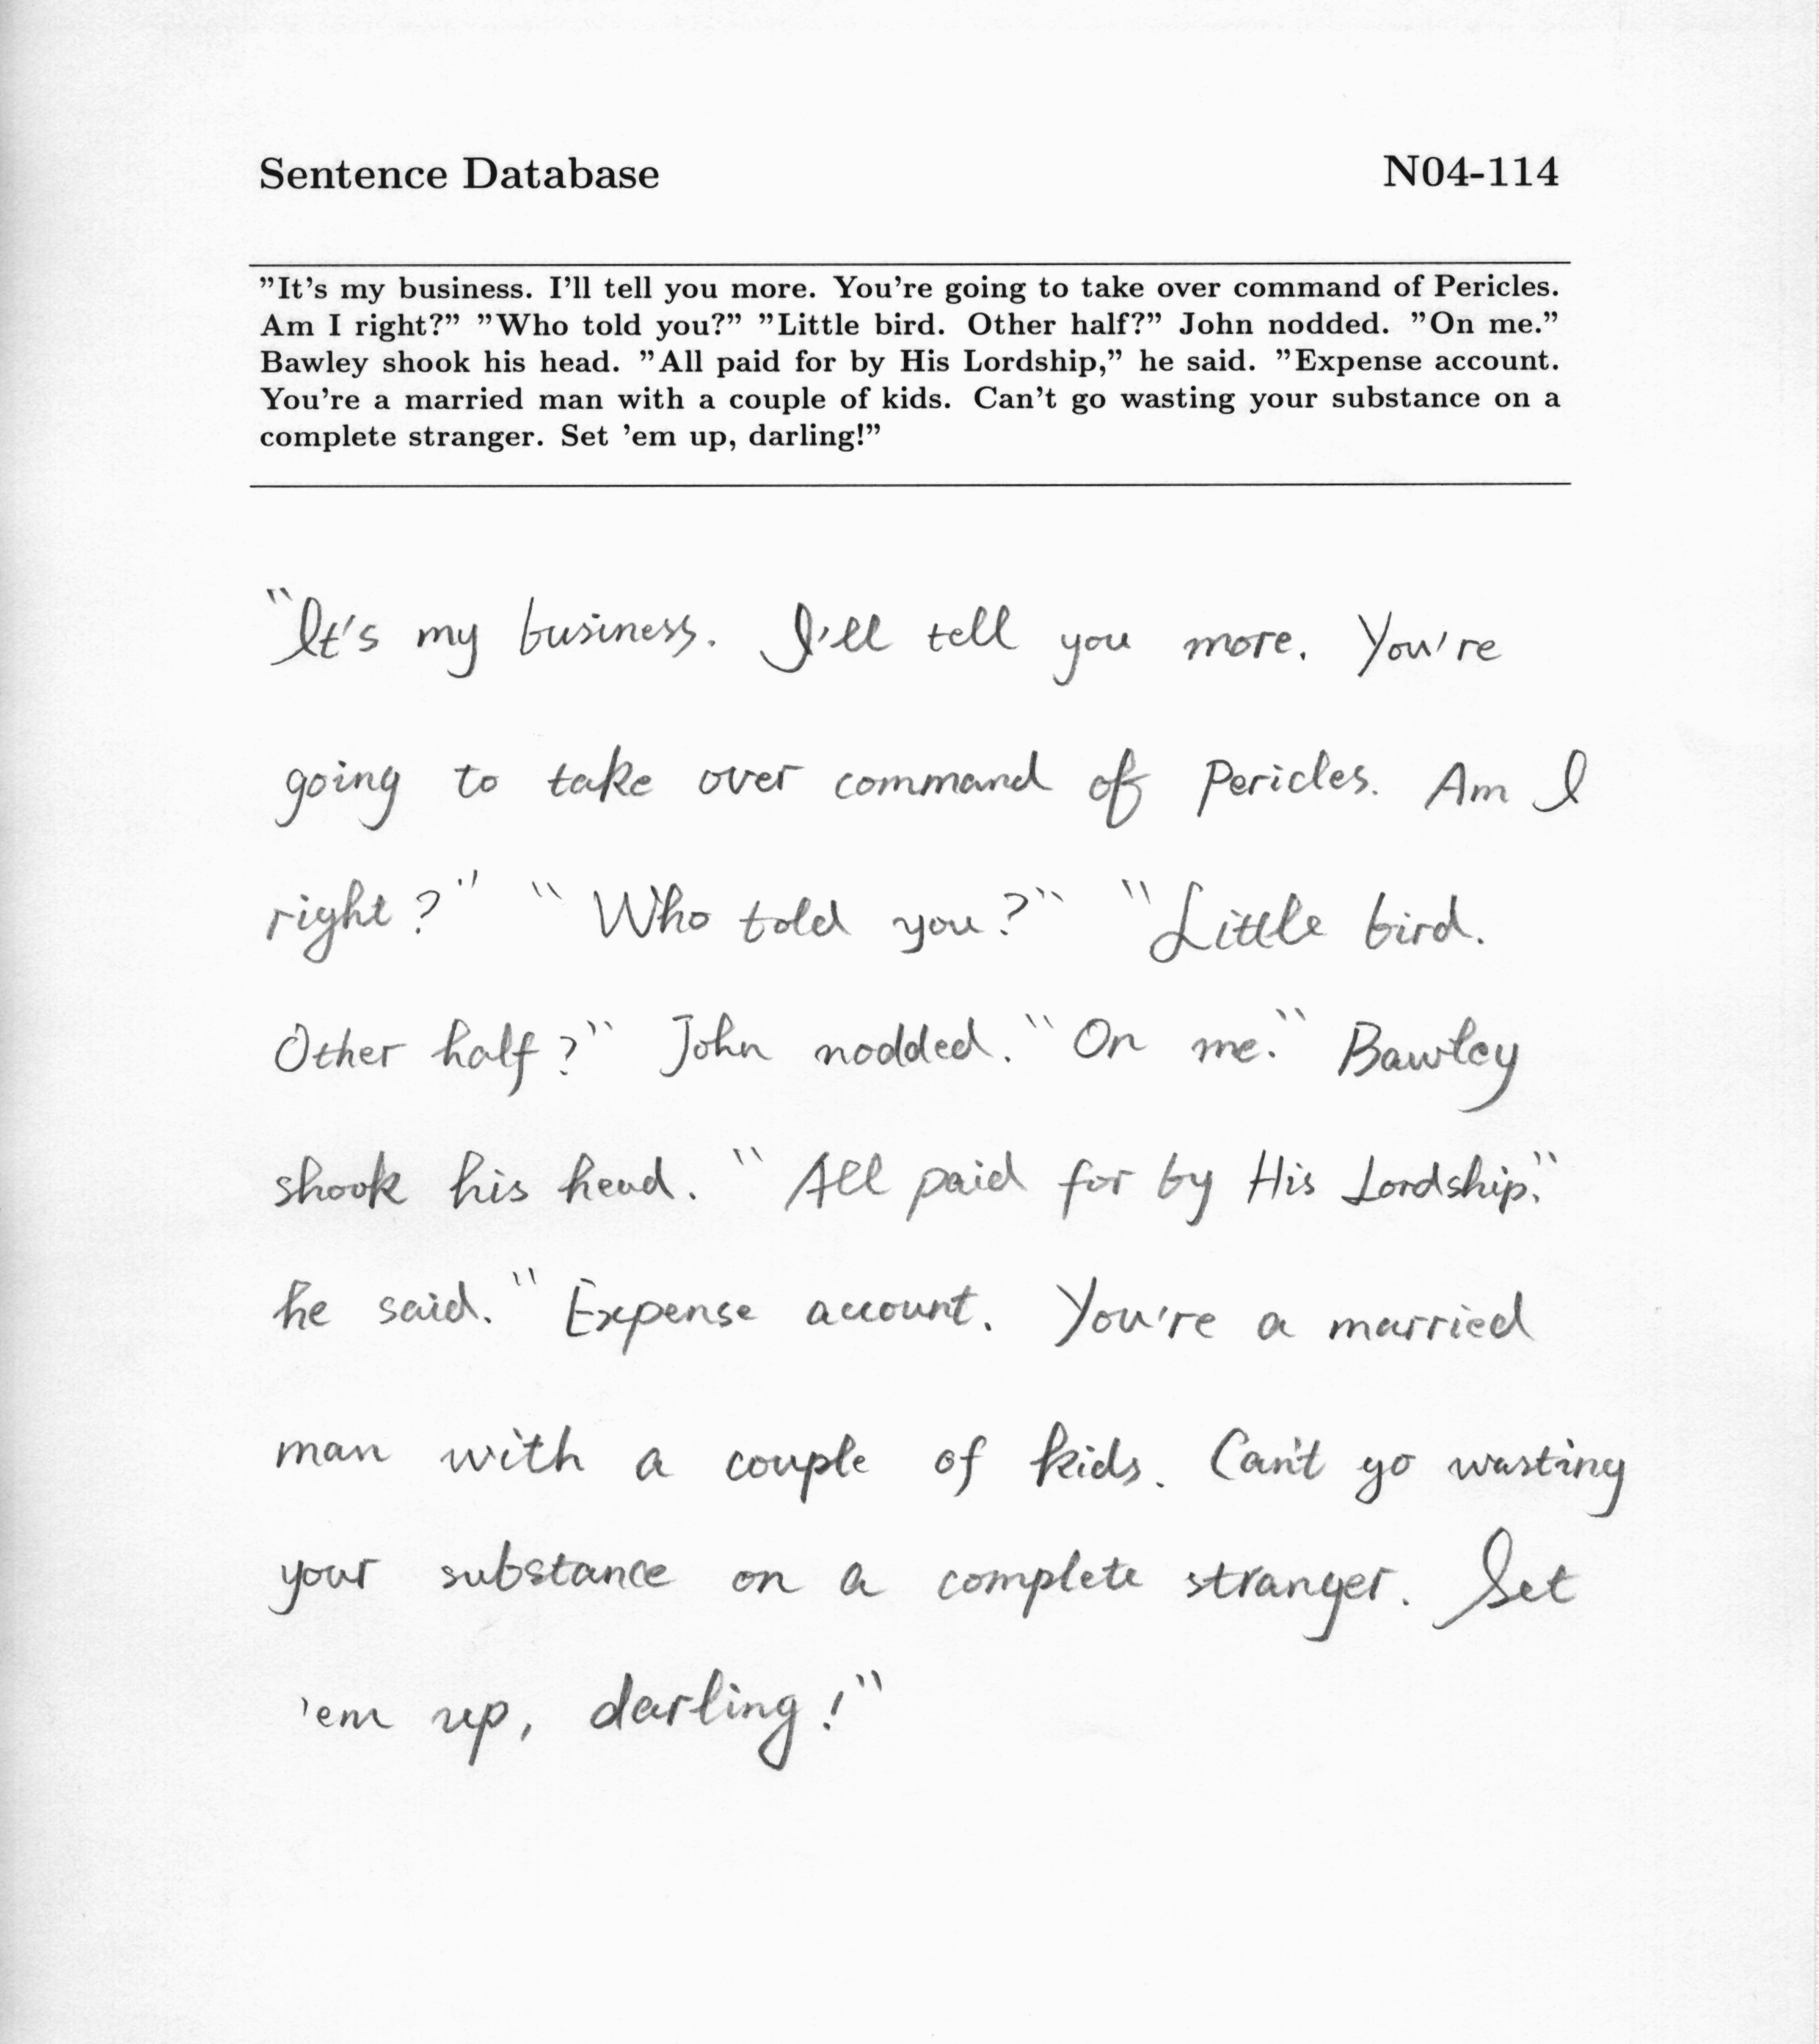 Sentence Database N04-114
"It's my business. I'll tell you more. You're going to take over command of Pericles.
Am I right?" "Who told you?" "Little bird. Other half?" John nodded. "On me."
Bawley shook his head. "All paid for by His Lordship," he said. "Expense account.
You're a married man with a couple of kids. Can't go wasting your substance on a
complete stranger. Set 'em up, darling!"
"It's my business. I'll tell you more. You're
going to take over command of Pericles. Am I
right?" "Who told you?" "Little bird.
Other half?" John nodded. "On me." Bawley
shook his head. "All paid for by His Lordship,"
he said. "Expense account. You're a married
man with a couple of kids. Can't go wasting
your substance on a complete stranger. Set
'em up, darling!"